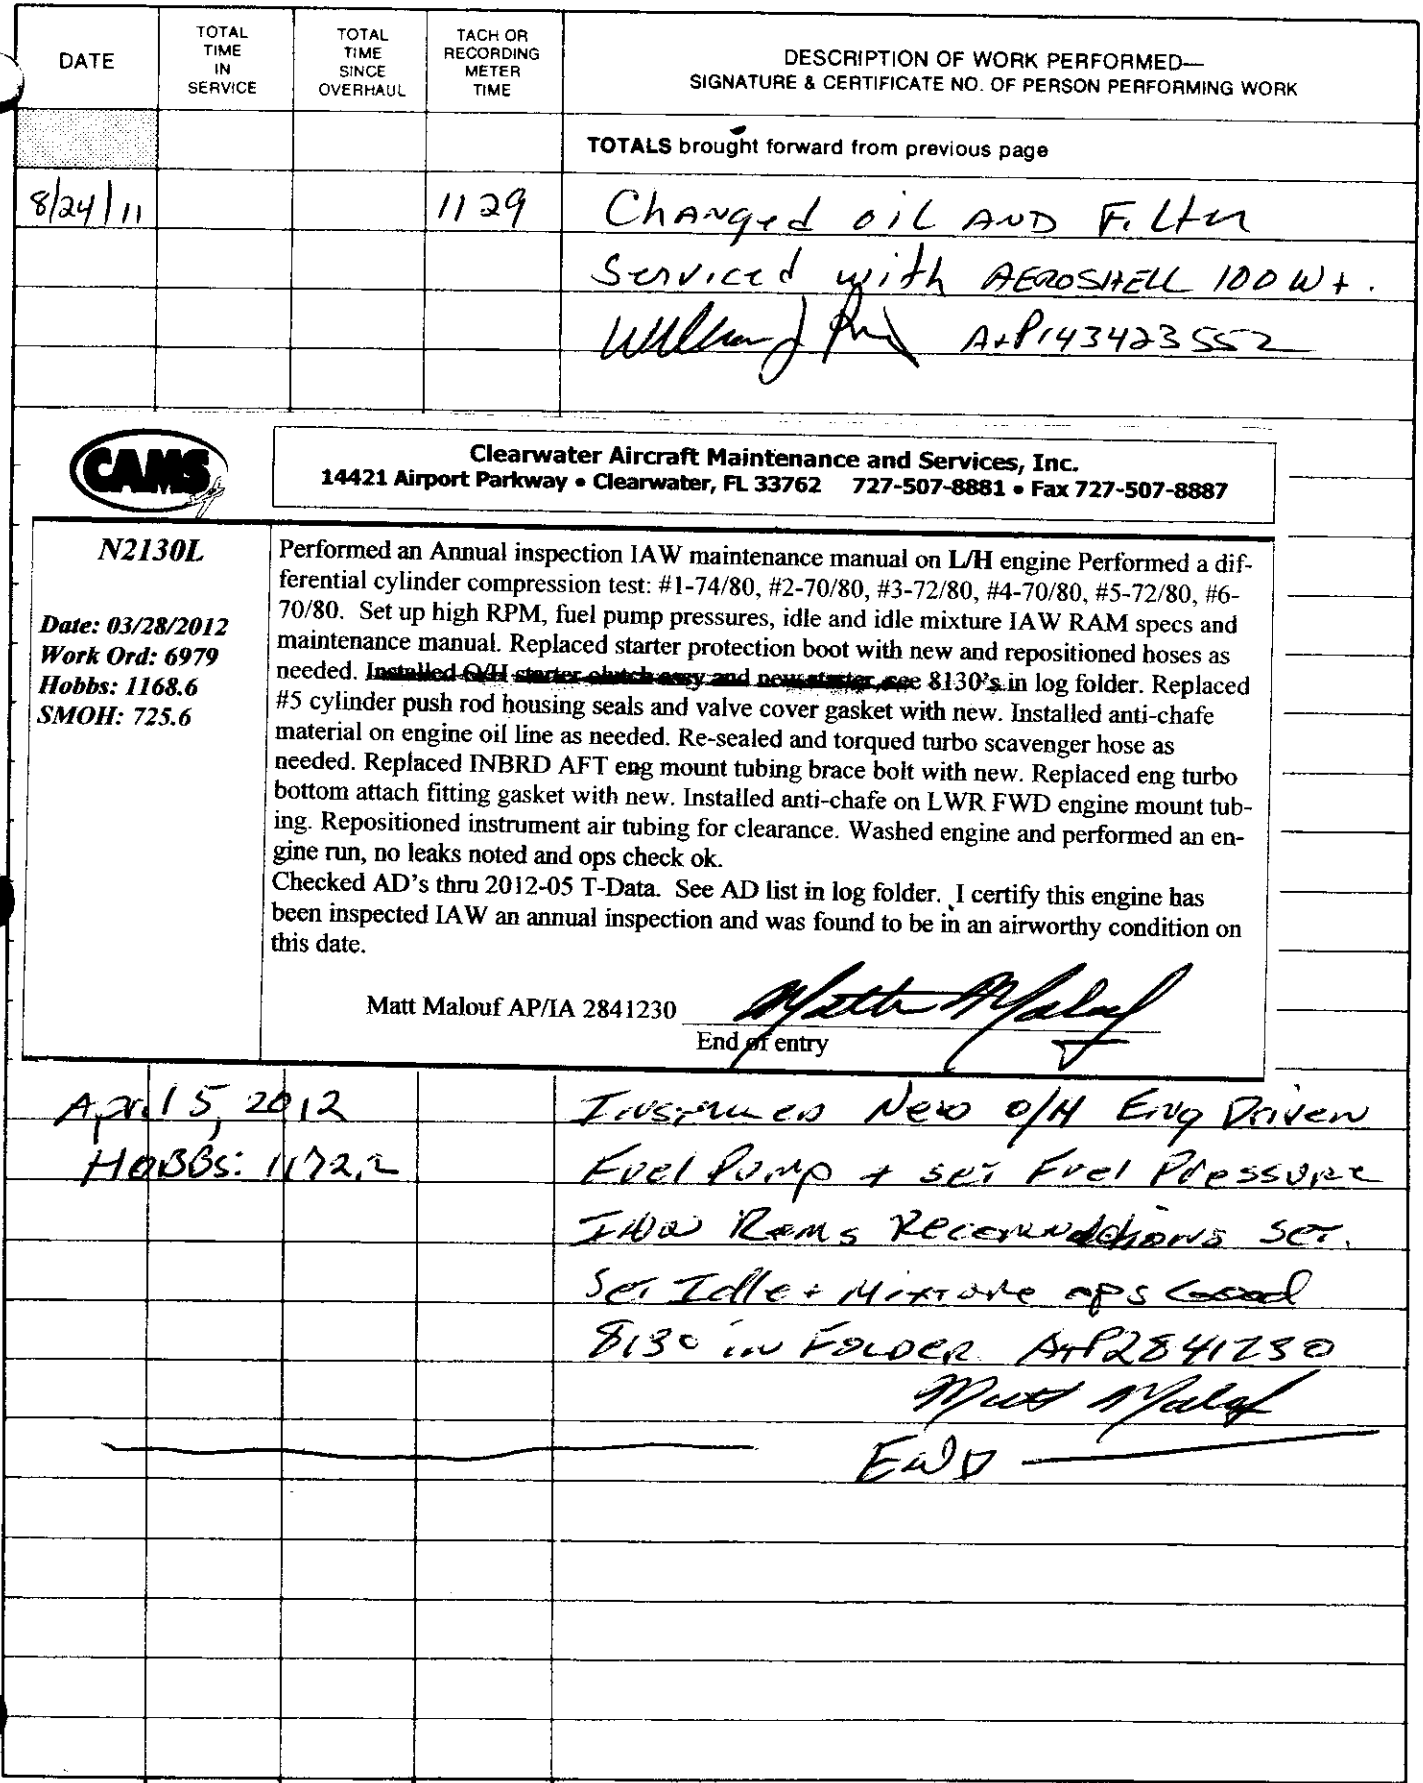 DATE
TOTAL
TIME
IN
SERVICE
TOTAL
TIME
SINCE
OVERHAUL
TACH OR
RECORDING
METER
TIME
DESCRIPTION OF WORK PERFORMED—
SIGNATURE & CERTIFICATE NO. OF PERSON PERFORMING WORK
TOTALS brought forward from previous page
8/24/11 1129 Changed oil AND Filter
Serviced with AEROSHELL 100 W+.
William J A+P143423552
CAMS
Clearwater Aircraft Maintenance and Services, Inc.
14421 Airport Parkway • Clearwater, FL 33762 727-507-8881 • Fax 727-507-8887
N2130L
Date: 03/28/2012
Work Ord: 6979
Hobbs: 1168.6
SMOH: 725.6
Performed an Annual inspection IAW maintenance manual on L/H engine Performed a dif-
ferential cylinder compression test: #1-74/80, #2-70/80, #3-72/80, #4-70/80, #5-72/80, #6-
70/80. Set up high RPM, fuel pump pressures, idle and idle mixture IAW RAM specs and
maintenance manual. Replaced starter protection boot with new and repositioned hoses as
needed. Installed O/H starter clutch assy and new starter, see 8130's in log folder. Replaced
#5 cylinder push rod housing seals and valve cover gasket with new. Installed anti-chafe
material on engine oil line as needed. Re-sealed and torqued turbo scavenger hose as
needed. Replaced INBRD AFT eng mount tubing brace bolt with new. Replaced eng turbo
bottom attach fitting gasket with new. Installed anti-chafe on LWR FWD engine mount tub-
ing. Repositioned instrument air tubing for clearance. Washed engine and performed an en-
gine run, no leaks noted and ops check ok.
Checked AD's thru 2012-05 T-Data. See AD list in log folder. I certify this engine has
been inspected IAW an annual inspection and was found to be in an airworthy condition on
this date.
Matt Malouf AP/IA 2841230 Matt Malouf
End of entry
April 5, 2012 Installed New O/H Eng Driven
HOBBS: 1172.2 Fuel Pump + set Fuel Pressure
IAW Rams Recommdations Set.
Set Idle + Mixture ops Good
8130 in FOLDER A+P2841230
Matt Malouf
End